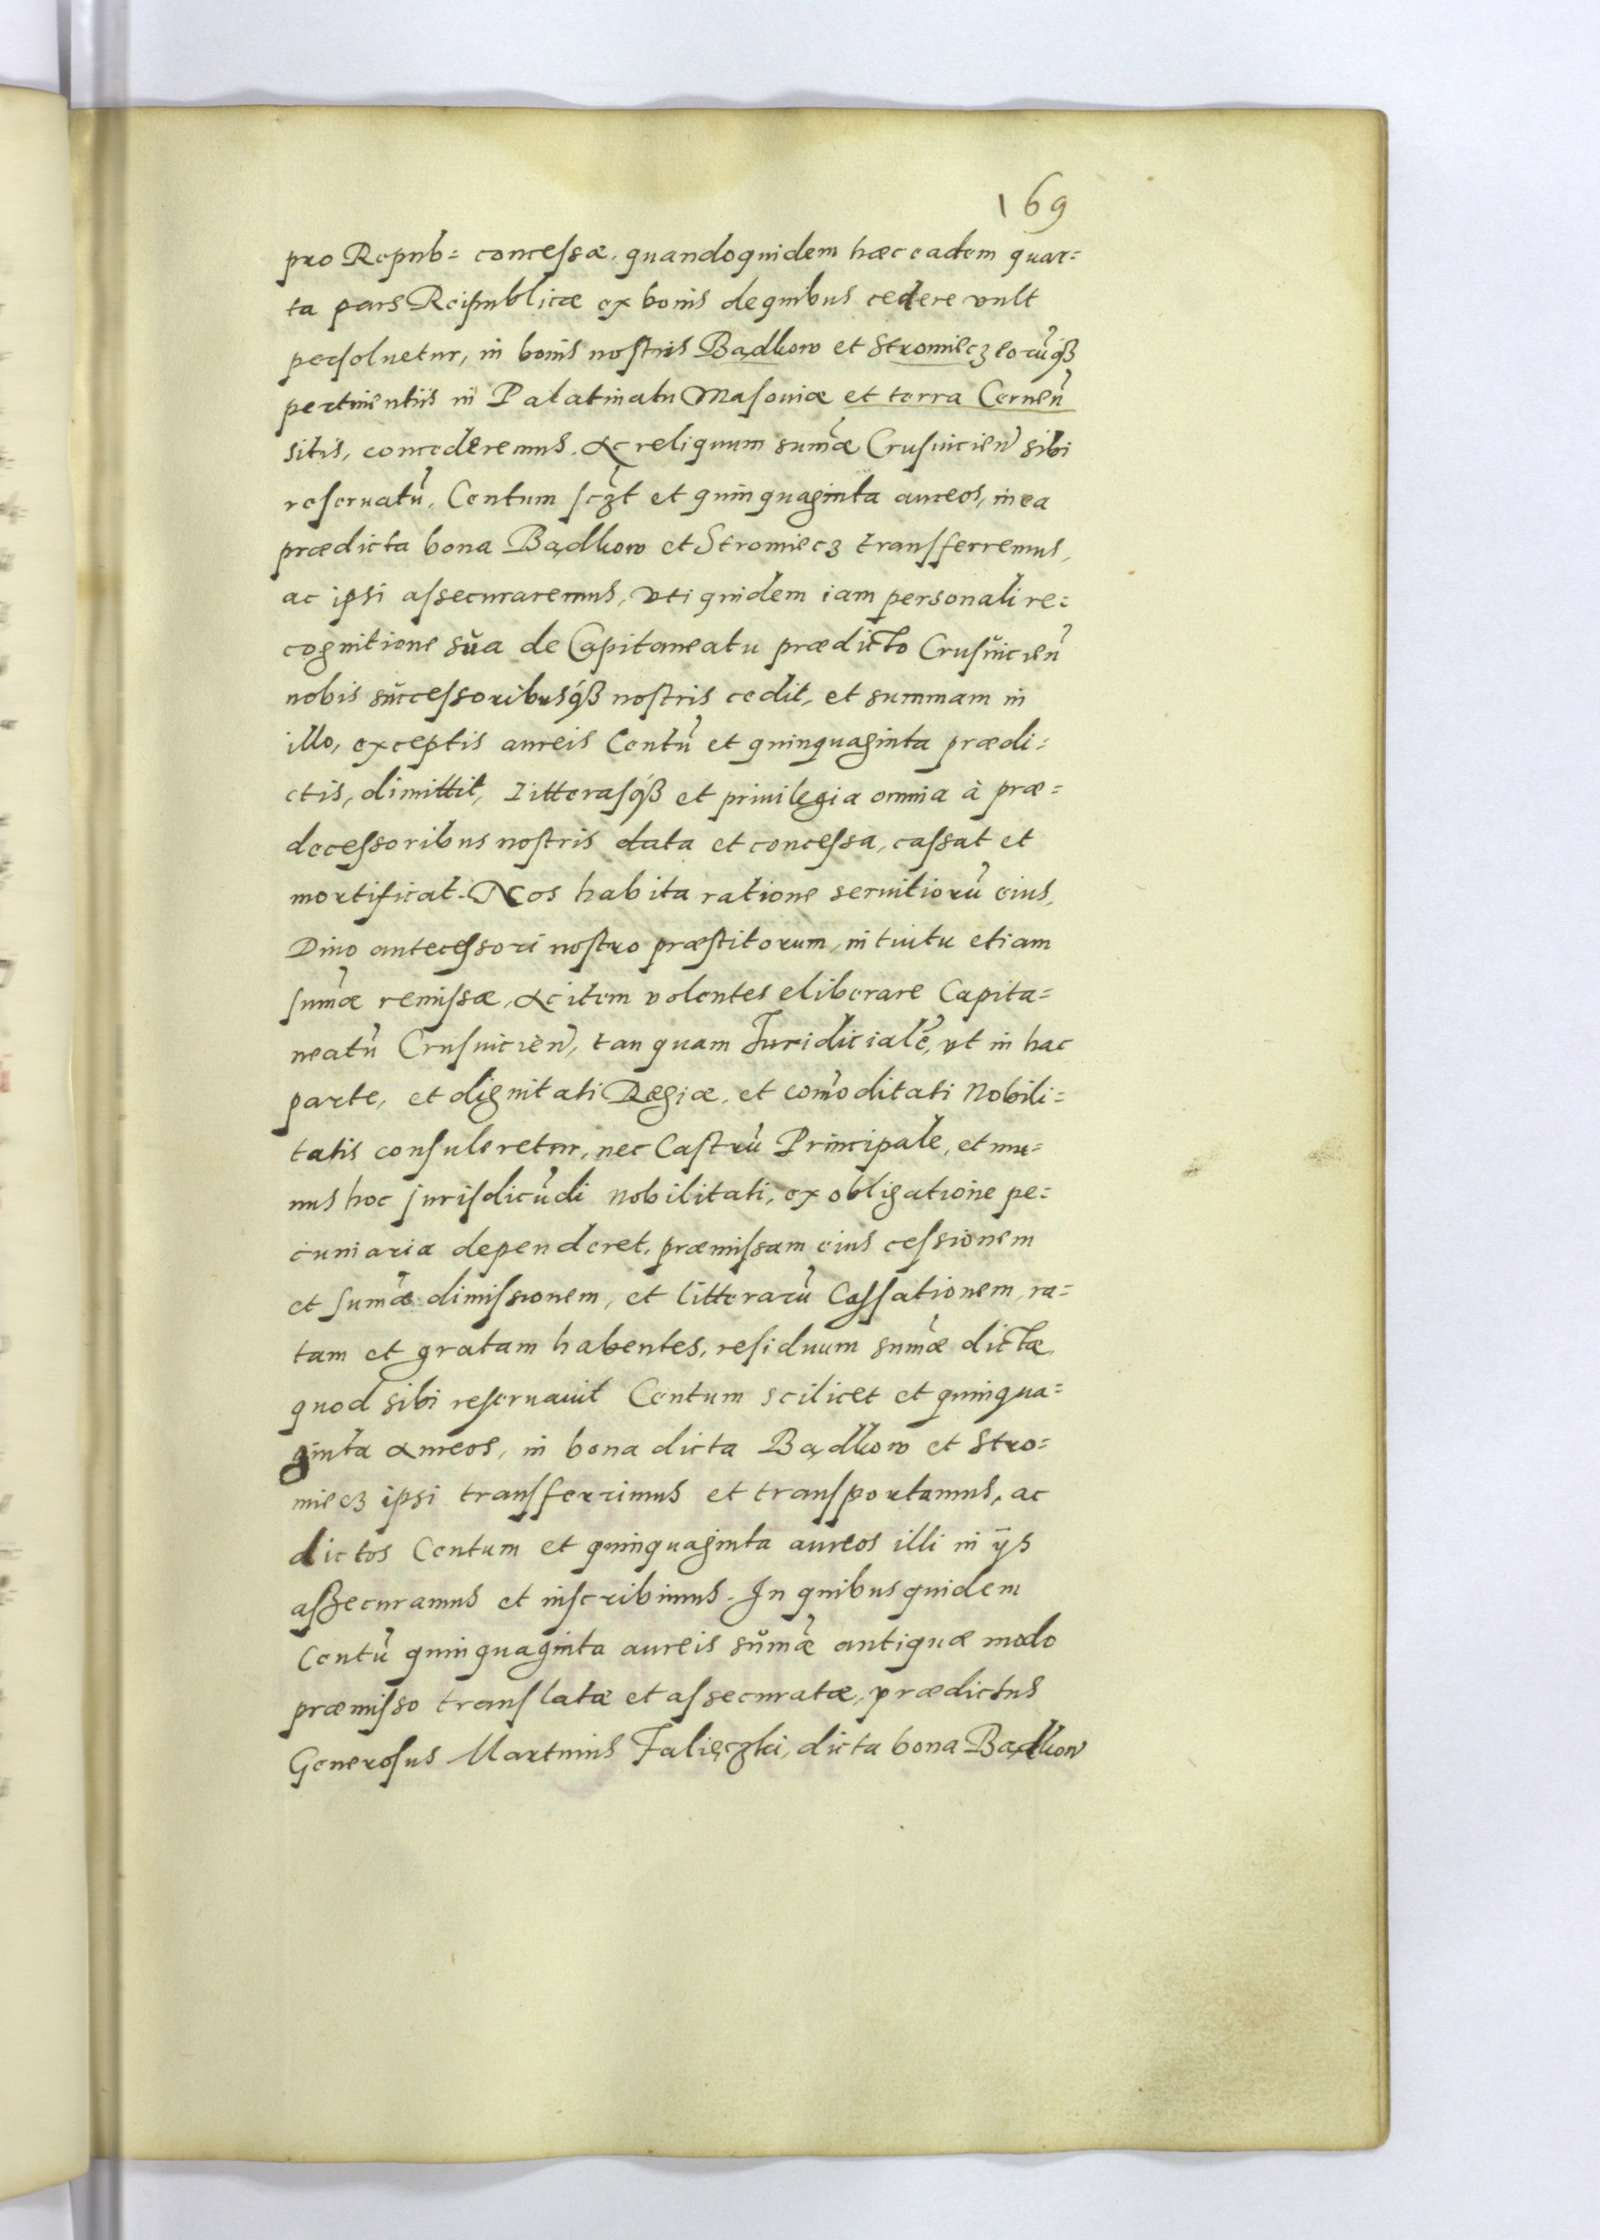 169
pro Repub= concessæ, quandoquidem hæc eadem quar=
ta pars Reipublicæ ex bonis de quibus cedere vult
persoluetur, in bonis nostris Bądkow et Stromiecz eorũq́ꝫ
pertinentiis in Palatinatu Masoviæ et terra Cernen̄
sitis, concederemus. Ac reliquum sum̃æ Crusuicien̄ sibi
reseruatũ, Centum sczt̃ et quinquaginta aureos, in ea
prædicta bona Bądkow et Stromiecz transferremus,
ac ipsi assecuraremus, vti quidem iam personali re=
cognitione sŭa de Capitaneatu prædicto Crusŭicien̄
nobis sŭccessoribusq́ꝫ nostris cedit, et summam in
illo, exceptis aureis Centũ et quinquaginta prædi=
ctis, dimittit, litterasq́ꝫ et priuilegia omnia à præ=
decessoribus nostris data et concessa, cassat et
mortificat. Nos habita ratione seruitiorũ eius,
Diuo antecessori nostro præstitorum, intuitu etiam
sum̃æ remissæ, Ac item volentes eliberare Capita=
neatũ Crusuicien̄, tanquam Juridicialẽ, vt in hac
parte, et dignitati Regiæ, et com̃oditati Nobili=
tatis consuleretur, nec Castrũ Principale, et mu=
nus hoc jurisdicũdi nobilitati, ex obligatione pe=
cuniaria dependeret, præmissam eius cessionem
et sum̃æ dimissionem, et litterarũ Cassationem, ra=
tam et gratam habentes, residuum sum̃æ dictæ,
quod sibi reseruauit Centum scilicet et quinqua=
ginta aureos, in bona dicta Bądkow et Stro=
miecz ipsi transferrimus et transportamus, ac
dictos Centum et quinquaginta aureos illi in ÿs
aßecuramus et inscribimus. In quibus quidem
Centũ quinquaginta aureis sŭm̃æ antiquæ modo
præmisso translatæ et assecuratæ, prædictus
Generosus Martinus Falięczki, dicta bona Bądkow